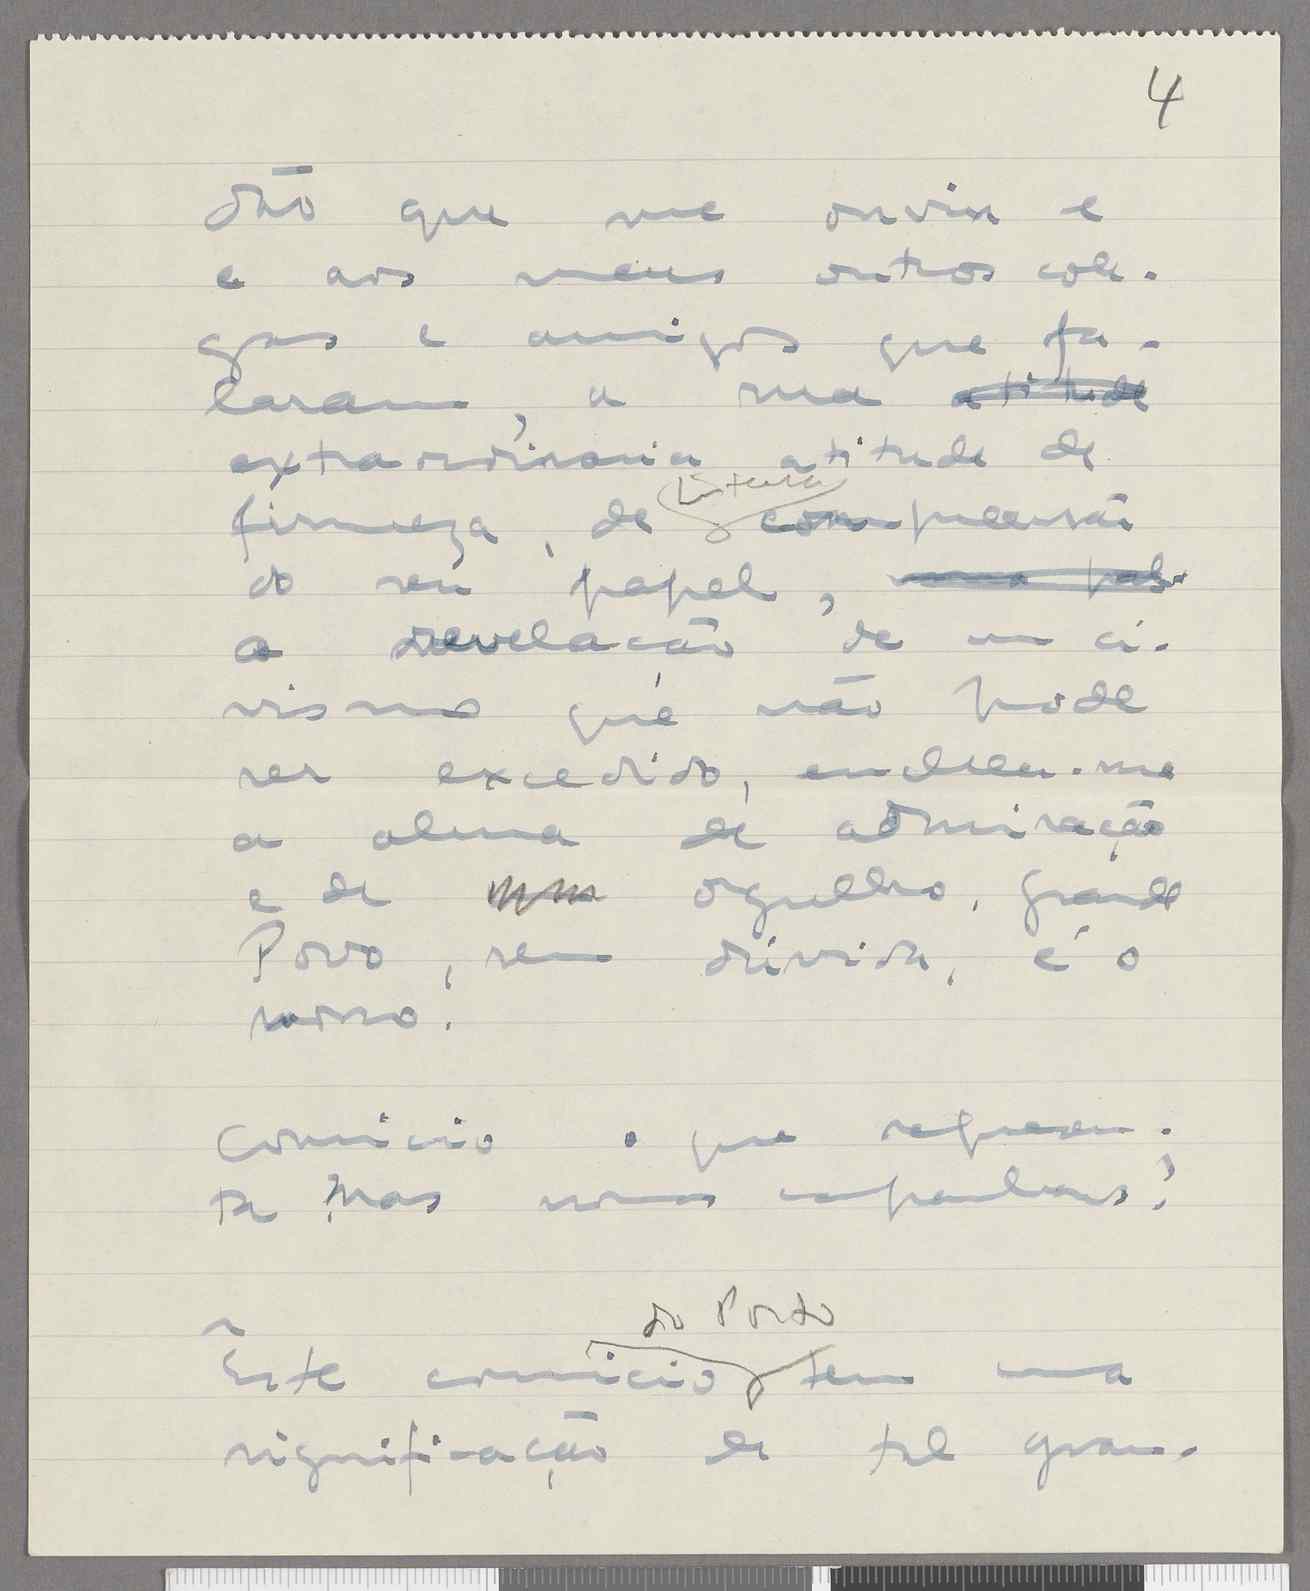 4
dão que me ouviu e
e aos meus outros cole-
gas e amigos que fa-
laram, a sua atitude
extraordinária atitude de
firmeza, de inteira compreensão
do seu papel,
a revelação de um ci-
vismo que não pode
ser excedido, enchem-me
a alma de admiração
e de orgulho, grande
Povo, sem dúvida, é o
nosso.
Comício o que represen-
ta Mas
do Porto
Êste comício tem uma
significação de tal gran-